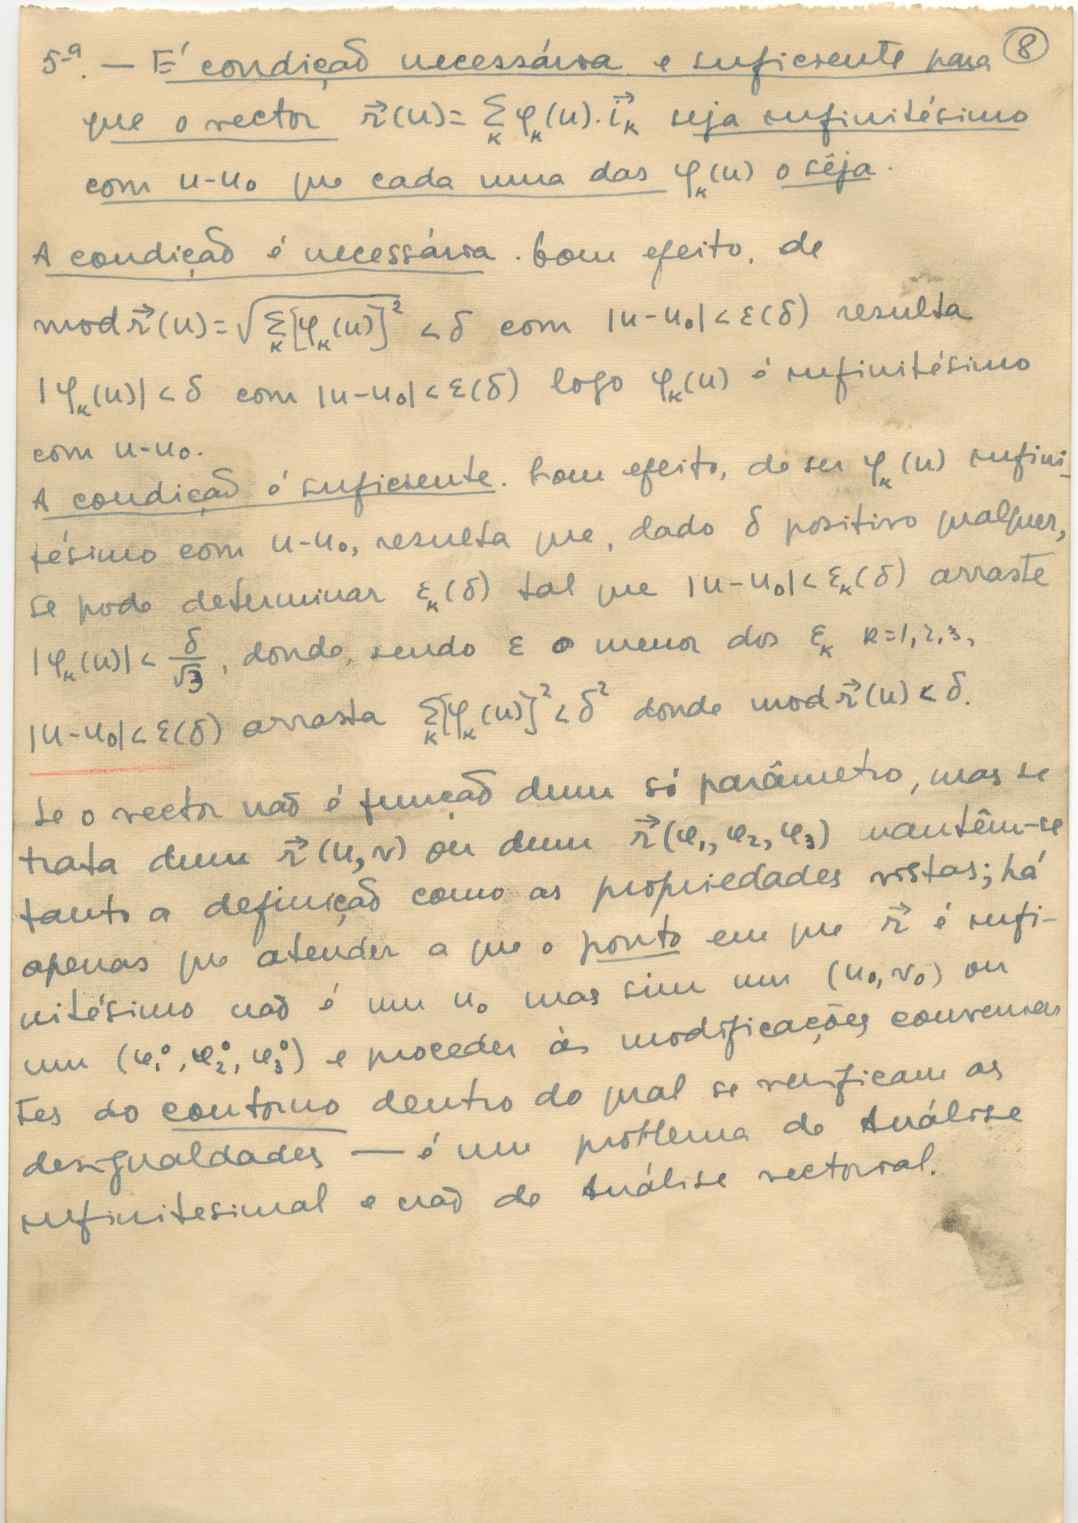 8
5ª. — É condição necessária e suficiente para
que o vector r⃗(u) = Σ_k φ_k(u). i⃗_k seja infinitésimo
com u-u₀ que cada uma das φ_k(u) o seja.
A condição é necessária. Com efeito, de
mod r⃗(u) = √(Σ_k [φ_k(u)]²) < δ com |u-u₀| < ε(δ) resulta
|φ_k(u)| < δ com |u-u₀| < ε(δ) logo φ_k(u) é infinitésimo
com u-u₀.
A condição é suficiente. Com efeito, de ser φ_k(u) infini-
tésimo com u-u₀, resulta que, dado δ positivo qualquer,
se pode determinar ε_k(δ) tal que |u-u₀| < ε_k(δ) arraste
|φ_k(u)| < δ/√3, donde, sendo ε o menor dos ε_k k=1,2,3,
|u-u₀| < ε(δ) arrasta Σ_k [φ_k(u)]² < δ² donde mod r⃗(u) < δ.
Se o vector não é função dum só parâmetro, mas se
trata dum r⃗(u,v) ou dum r⃗(φ₁, φ₂, φ₃) mantêm-se
tanto a definição como as propriedades vistas; há
apenas que atender a que o ponto em que r⃗ é infi-
nitésimo não é um u₀ mas sim um (u₀,v₀) ou
um (φ₁⁰, φ₂⁰, φ₃⁰) e proceder às modificações convenien
tes do contorno dentro do qual se verificam as
desigualdades — é um problema de Análise
infinitesimal e não de Análise vectorial.